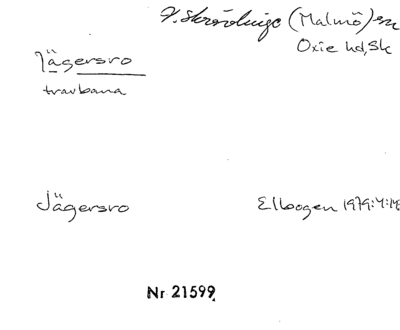 V. Skrävlinge (Malmö) sn
Oxie hd, Sk
Jägersro
travbana
Jägersro
Elbogen 1979:4:18
Nr 21599